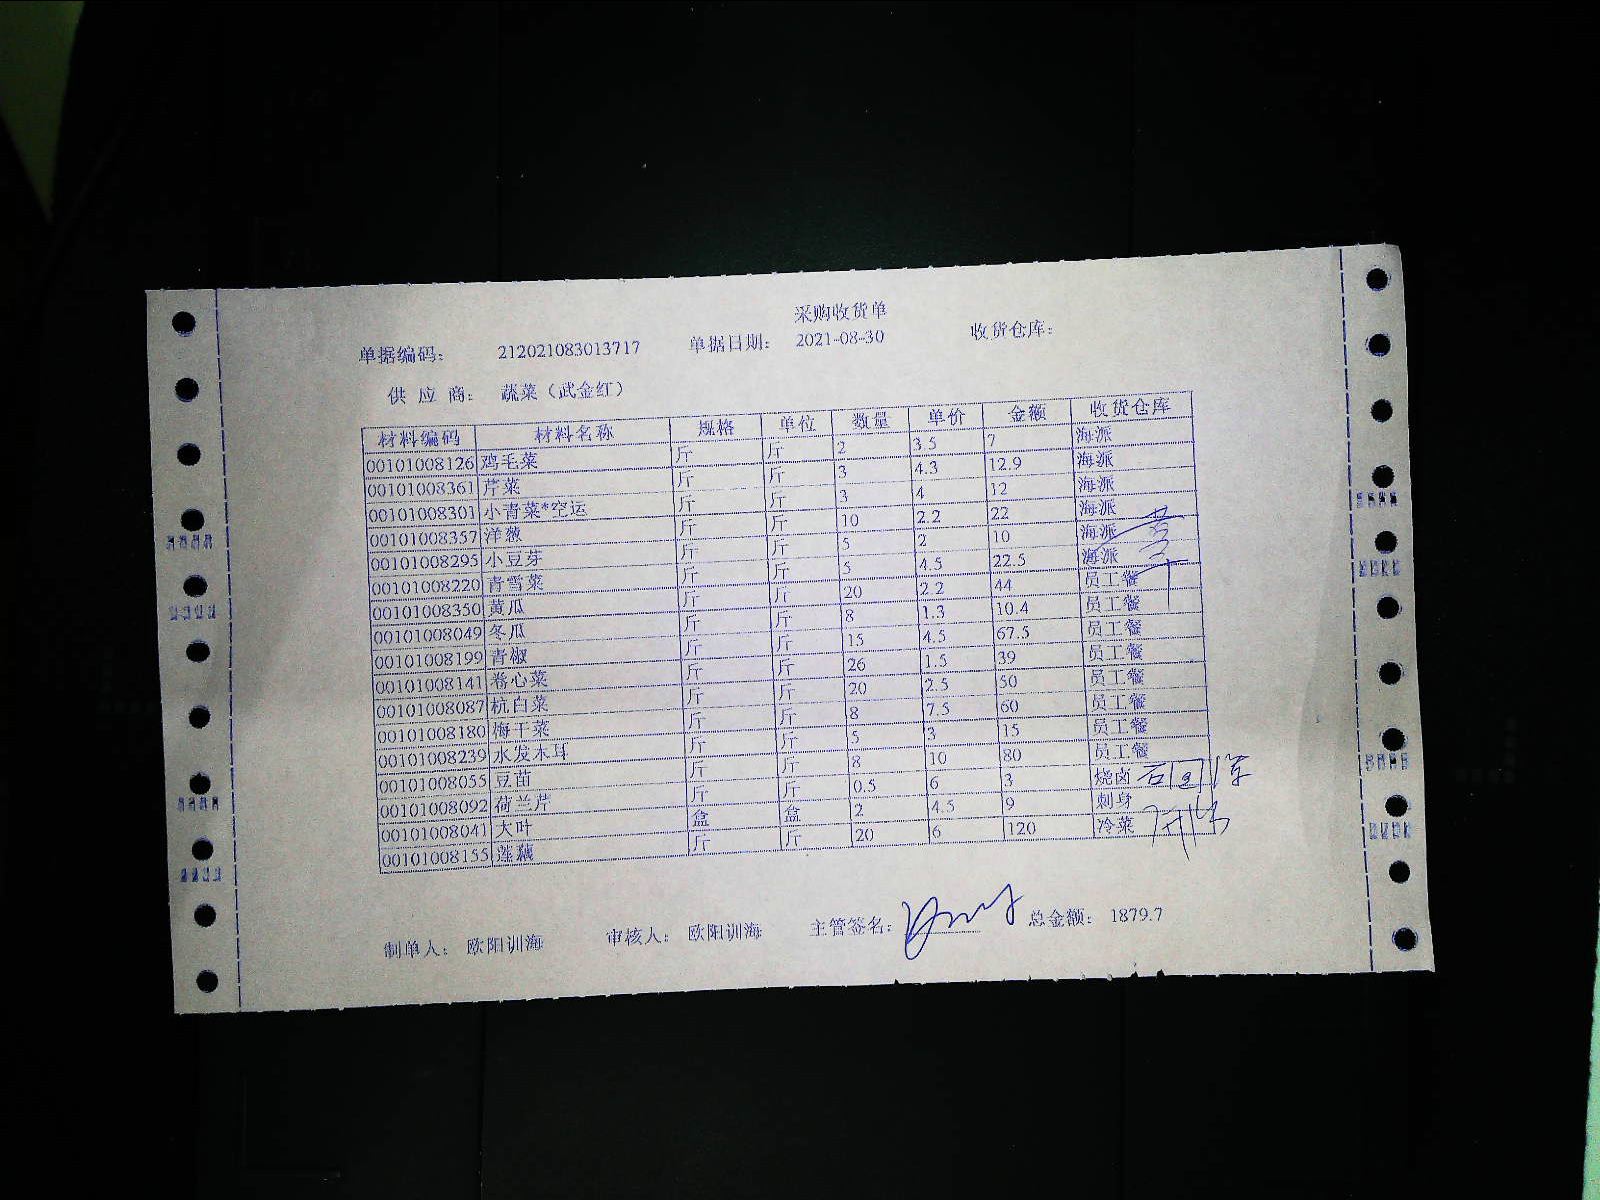 采购收货单
单据编码: 212021083013717 单据日期: 2021-08-30 收货仓库:
供应商: 蔬菜（武金红）
材料编码 材料名称 规格 单位 数量 单价 金额 收货仓库
00101008126 鸡毛菜 斤 斤 2 3.5 7 海派
00101008361 芹菜 斤 斤 3 4.3 12.9 海派
00101008301 小青菜*空运 斤 斤 3 4 12 海派
00101008357 洋葱 斤 斤 10 2.2 22 海派
00101008295 小豆芽 斤 斤 5 2 10 海派
00101008220 青雪菜 斤 斤 5 4.5 22.5 海派
00101008350 黄瓜 斤 斤 20 2.2 44 员工餐
00101008049 冬瓜 斤 斤 8 1.3 10.4 员工餐
00101008199 青椒 斤 斤 15 4.5 67.5 员工餐
00101008141 卷心菜 斤 斤 26 1.5 39 员工餐
00101008087 杭白菜 斤 斤 20 2.5 50 员工餐
00101008180 梅干菜 斤 斤 8 7.5 60 员工餐
00101008239 水发木耳 斤 斤 5 3 15 员工餐
00101008055 豆苗 斤 斤 8 10 80 员工餐
00101008092 荷兰芹 斤 斤 0.5 6 3 烧卤
00101008041 大叶 盒 盒 2 4.5 9 刺身
00101008155 莲藕 斤 斤 20 6 120 冷菜
制单人: 欧阳训海 审核人: 欧阳训海 主管签名: 总金额: 1879.7